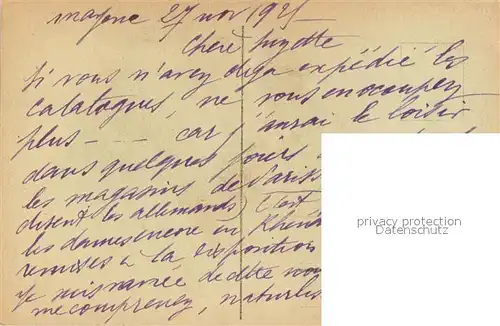 mayence 27 nov 1925
Chère Suzette
Si vous n'avez déja expédié les
catalogues, ne vous en occupez
plus - - car j'aurai le loisir
dans quelques jours
les magasins de Paris
disent les allemands) C'est
les dames encore en Rhéna
remises à la disposition
je suis navrée de cette nou
me comprenez, naturel
privacy protection
Datenschutz